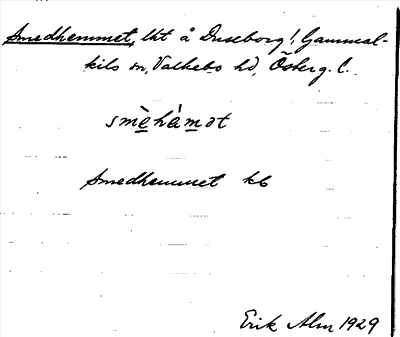 Smedhemmet, lht å Duseborg, Gammal-
kils sn, Valkebo hd, Österg. l.
smèhàmət
Smedhemmet kb
Erik Alm 1929